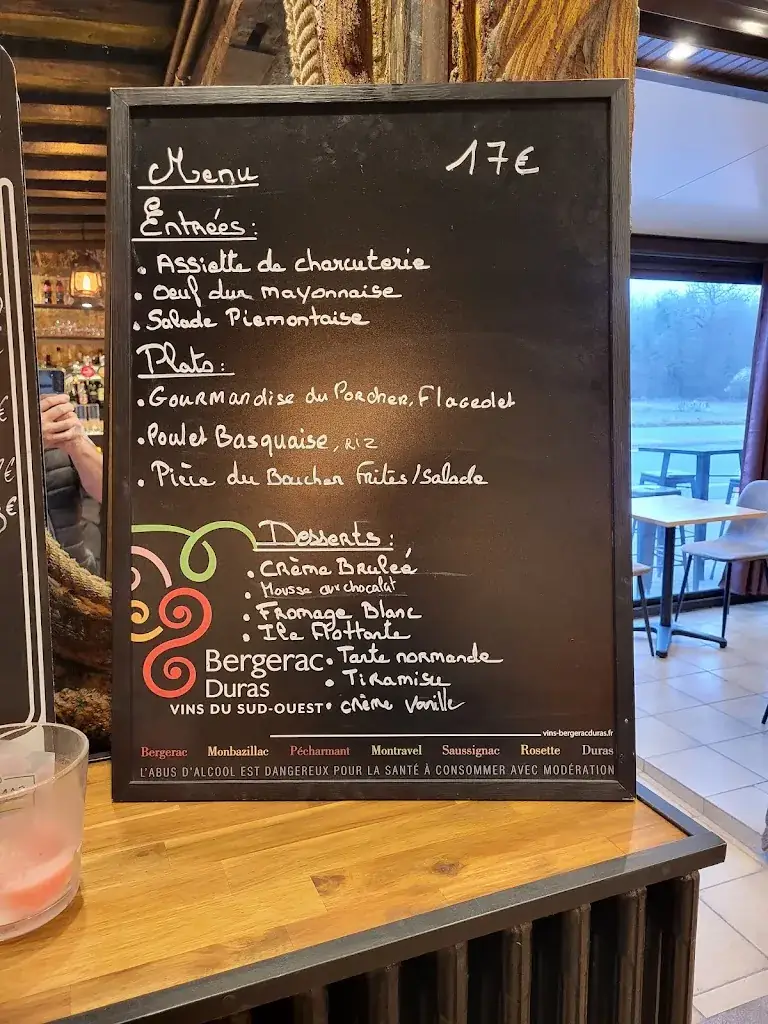 Menu
17€
Entrées:
• Assiette de charcuterie
• Oeuf dur mayonnaise
• Salade Piemontaise
Plats:
• Gourmandise du Porcher, Flageolet
• Poulet Basquaise, riz
• Pièce du Boucher Frites/Salade
Desserts:
• Crème Brulée
• Mousse au chocolat
• Fromage Blanc
• Ile Flottante
• Tarte normande
• Tiramisu
• crème vanille
Bergerac
Duras
VINS DU SUD-OUEST
vins-bergeracduras.fr
Bergerac Monbazillac Pécharmant Montravel Saussignac Rosette Duras
L'ABUS D'ALCOOL EST DANGEREUX POUR LA SANTÉ À CONSOMMER AVEC MODÉRATION